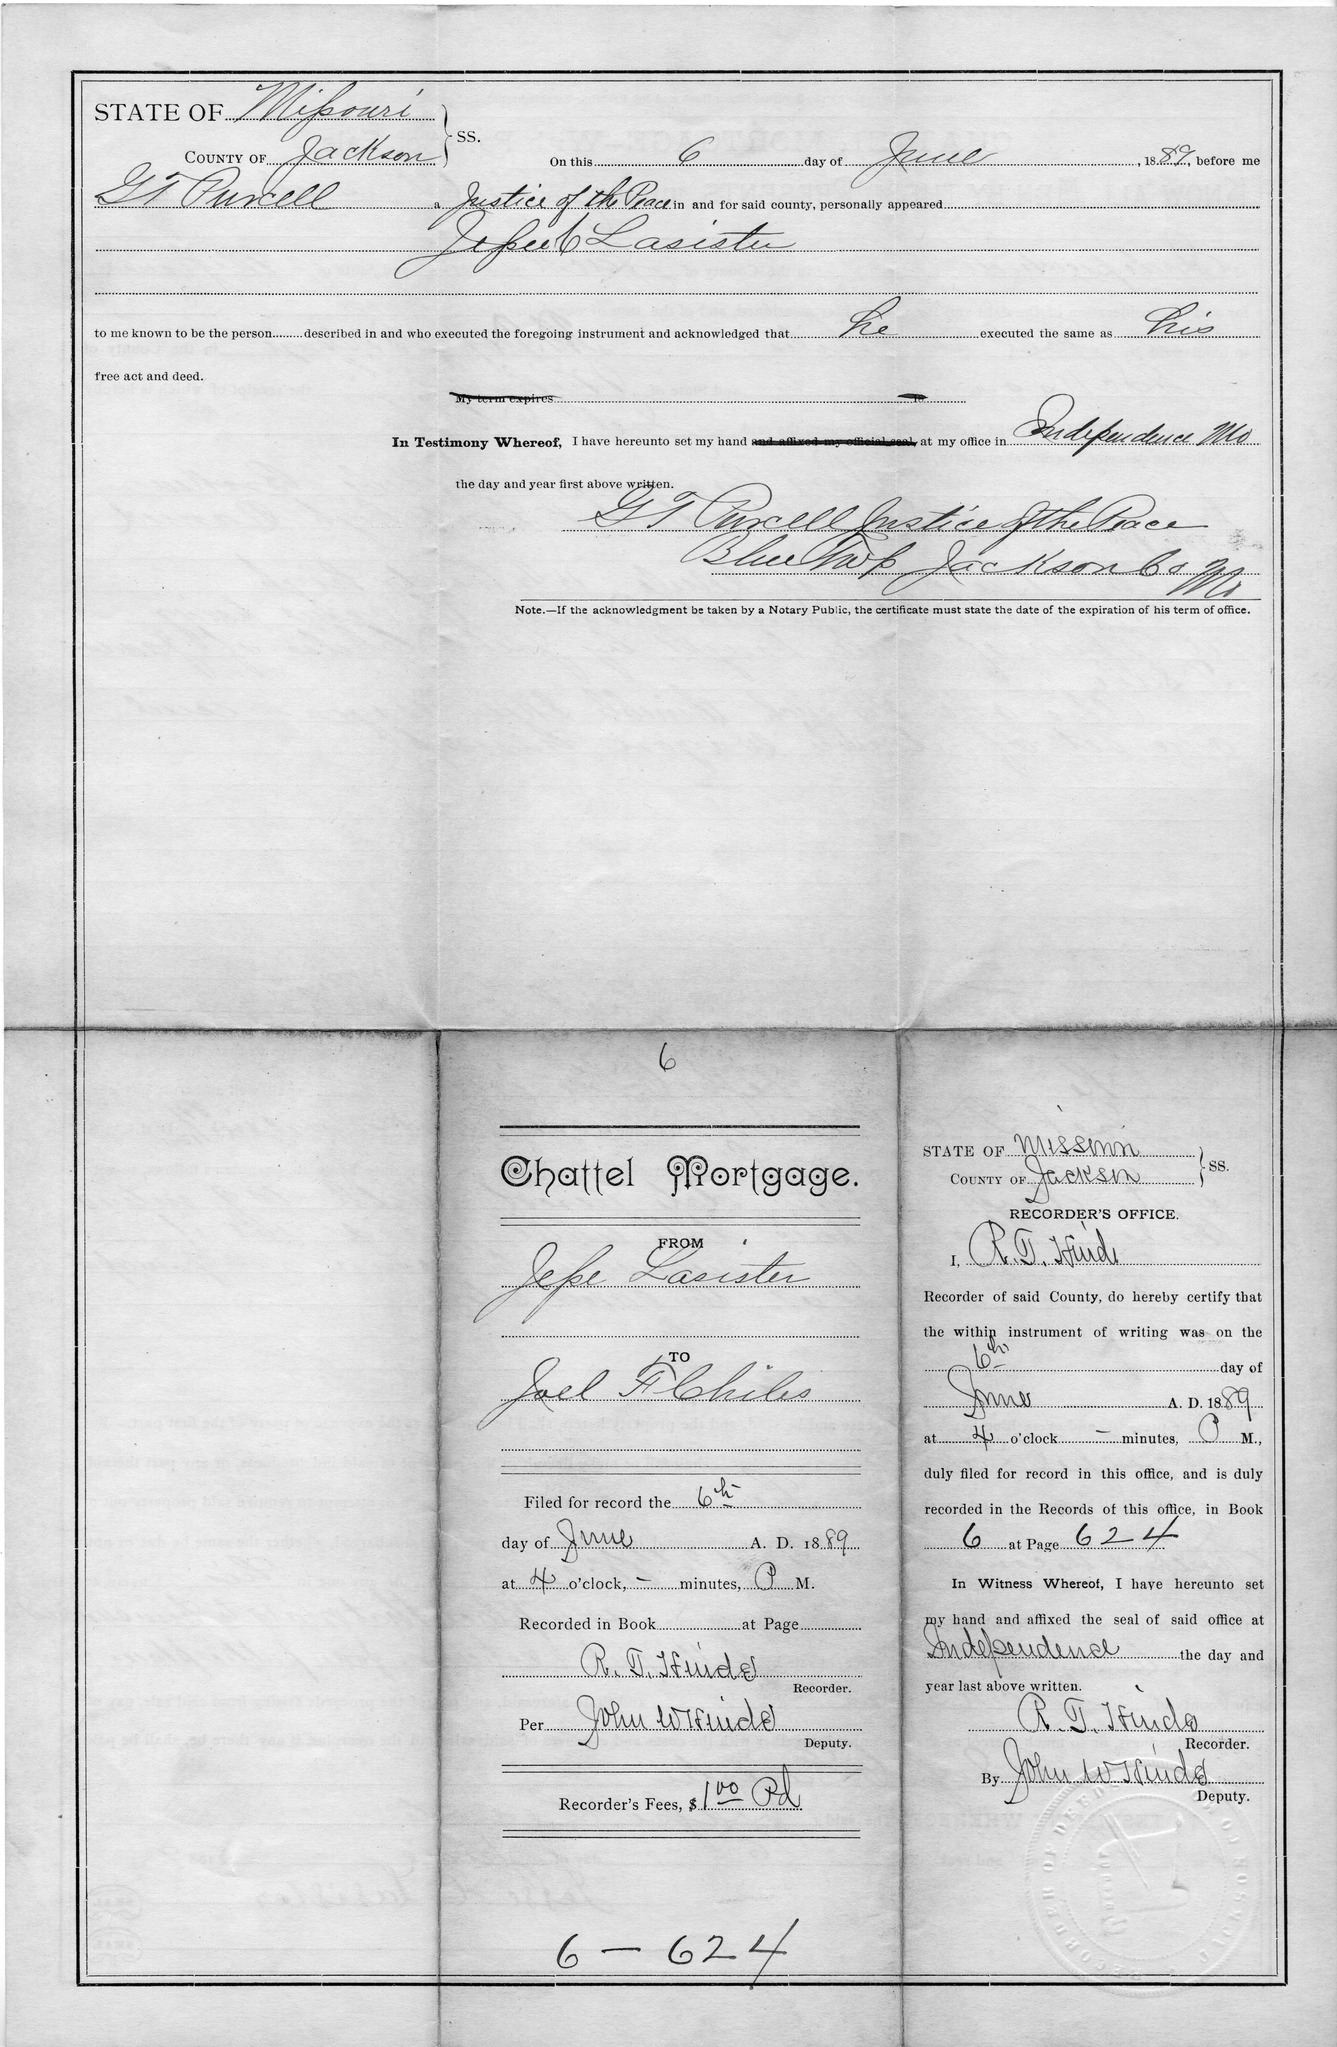 STATE OF Missouri
COUNTY OF Jackson } SS.
On this 6 day of June, 1889, before me
G T Purcell a Justice of the Peace in and for said county, personally appeared
Jesse C Lasister
to me known to be the person described in and who executed the foregoing instrument and acknowledged that he executed the same as his
free act and deed.
My term expires 18
In Testimony Whereof, I have hereunto set my hand and affixed my official seal, at my office in Independence Mo
the day and year first above written.
G T Purcell Justice of the Peace
Blue Twp Jackson Co Mo
Note.—If the acknowledgment be taken by a Notary Public, the certificate must state the date of the expiration of his term of office.
6
Chattel Mortgage.
FROM
Jesse Lasister
TO
Joel F Chiles
Filed for record the 6th
day of June A. D. 1889
at 4 o'clock, - minutes, P M.
Recorded in Book at Page
R. T. Hinde
Recorder.
Per John W Hinde
Deputy.
Recorder's Fees, $1 00 Pd
6 - 624
STATE OF Missouri
COUNTY OF Jackson } SS.
RECORDER'S OFFICE.
I, R. T. Hinde
Recorder of said County, do hereby certify that
the within instrument of writing was on the
6th day of
June A. D. 1889
at 4 o'clock - minutes, P M.,
duly filed for record in this office, and is duly
recorded in the Records of this office, in Book
6 at Page 624
In Witness Whereof, I have hereunto set
my hand and affixed the seal of said office at
Independence the day and
year last above written.
R. T. Hinde
Recorder.
By John W Hinde
Deputy.
RECORDER OF DEEDS
JACKSON CO